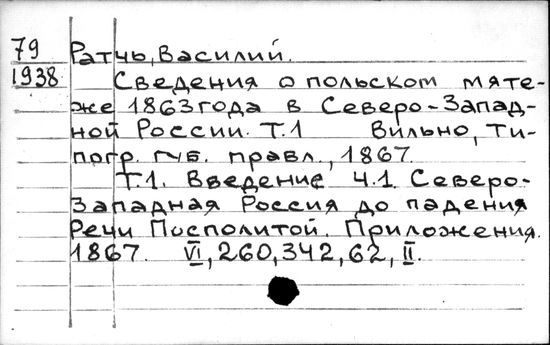 79 Ратчь, Василий.
1938 Сведения о польском мяте-
же 1863 года в Северо-Запад-
ной России. Т.1 Вильно, ти-
погр. губ. правл., 1867.
Т.1. Введение ч.1. Северо-
Западная Россия до падения
Речи Посполитой. Приложения.
1867. VI, 260, 342, 62, II.